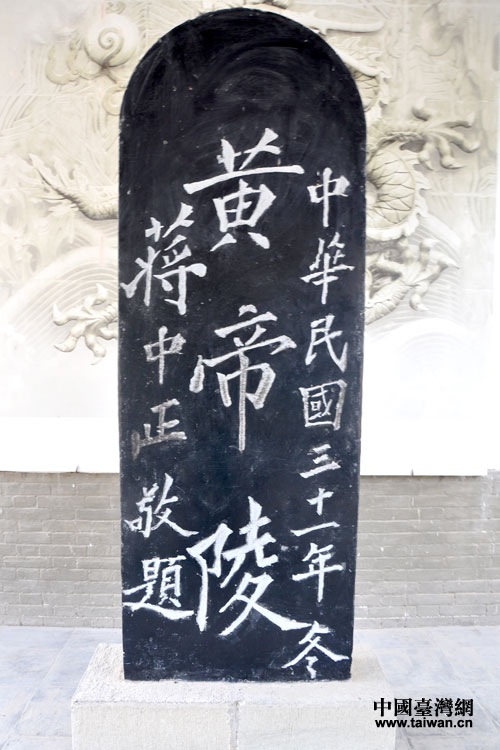 中華民國三十一年冬
黄帝陵
蔣中正敬題
中國臺灣網
www.taiwan.cn